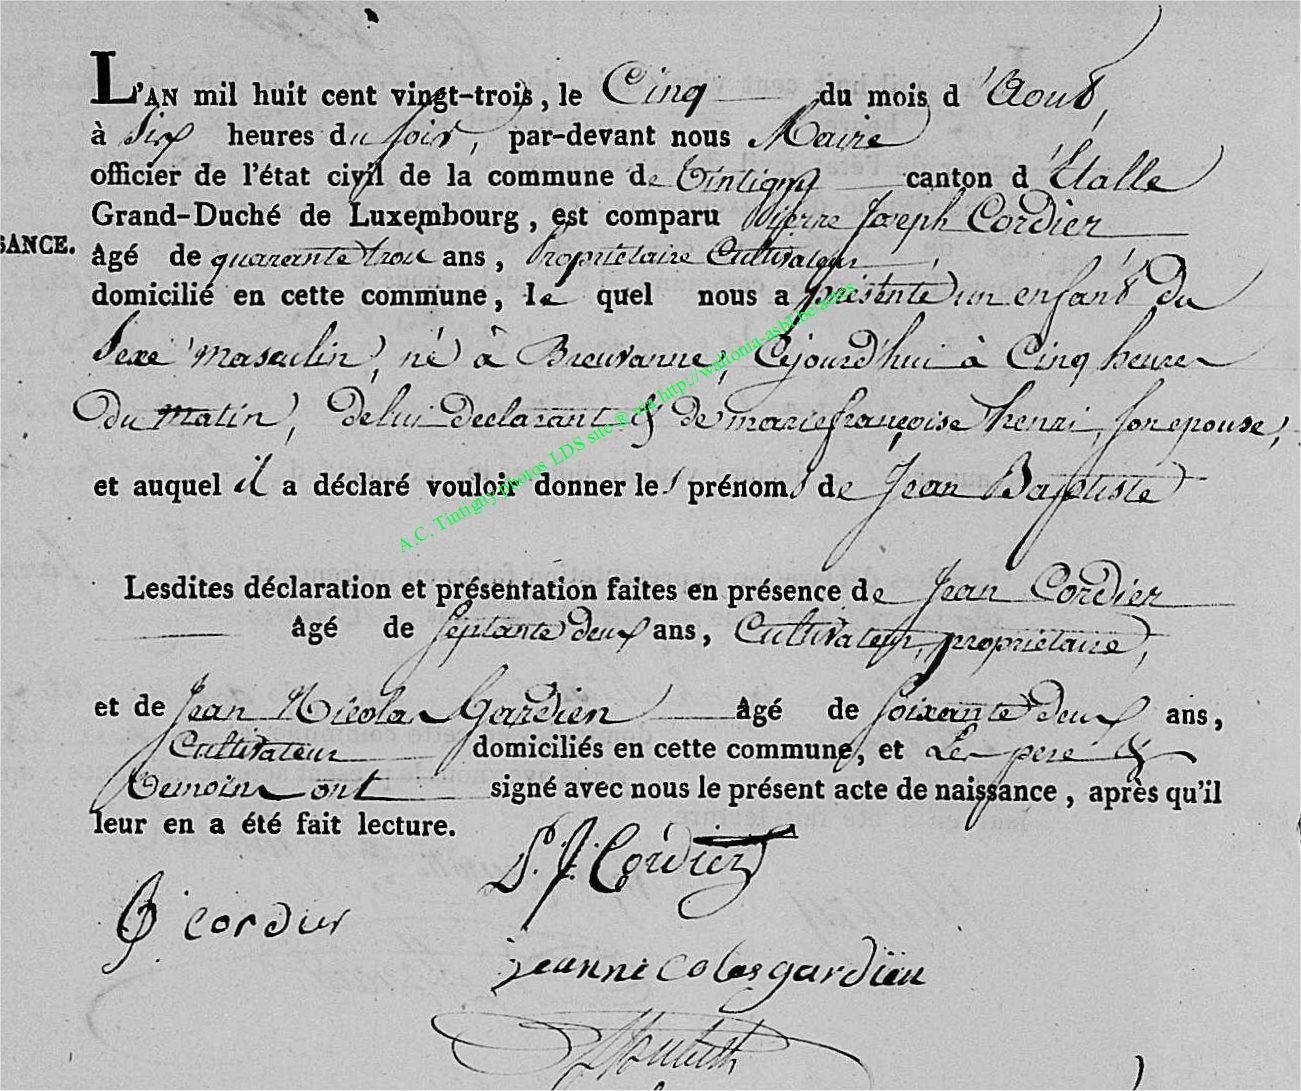 L'AN mil huit cent vingt-trois, le Cinq du mois d'Aout,
à Six heures du soir, par-devant nous Maire
officier de l'état civil de la commune de Tintigny canton d'Etalle
Grand-Duché de Luxembourg, est comparu Pierre Joseph Cordier
SANCE.
âgé de quarante trois ans, Propriétaire Cultivateur,
domicilié en cette commune, le quel nous a présenté un enfant du
Sexe masculin, né à Breuvanne, Cejourd'hui à Cinq heures
Du Matin, De lui Declarant & De marie françoise henri, son epouse,
et auquel il a déclaré vouloir donner les prénoms de Jean Baptiste
A.C. Tintigny photos LDS site ® via http://wallonia-asbl.be/actes
Lesdites déclaration et présentation faites en présence de Jean Cordier
âgé de Septante deux ans, Cultivateur, propriétaire,
et de Jean Nicolas Gardien âgé de soixante deux ans,
Cultivateur domiciliés en cette commune, et Les pere &
temoins ont signé avec nous le présent acte de naissance, après qu'il
leur en a été fait lecture.
P. J. Cordier
cordier
jeannicolas gardien